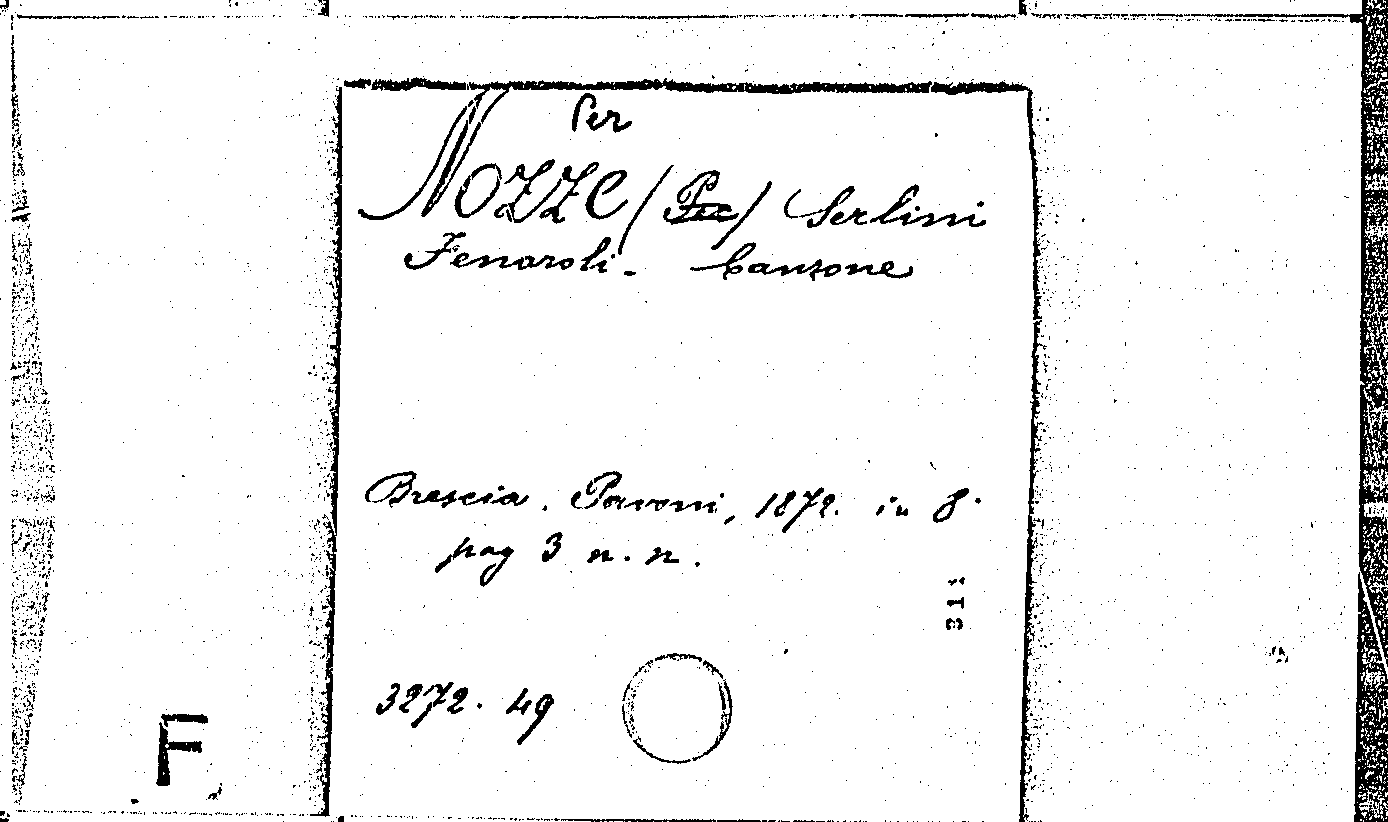 Per
Nozze (Per) Serlini
Fenaroli - Canzone
Brescia. Pavoni, 1872. in 8.
pag 3 n. n.
311
3272. 49
F